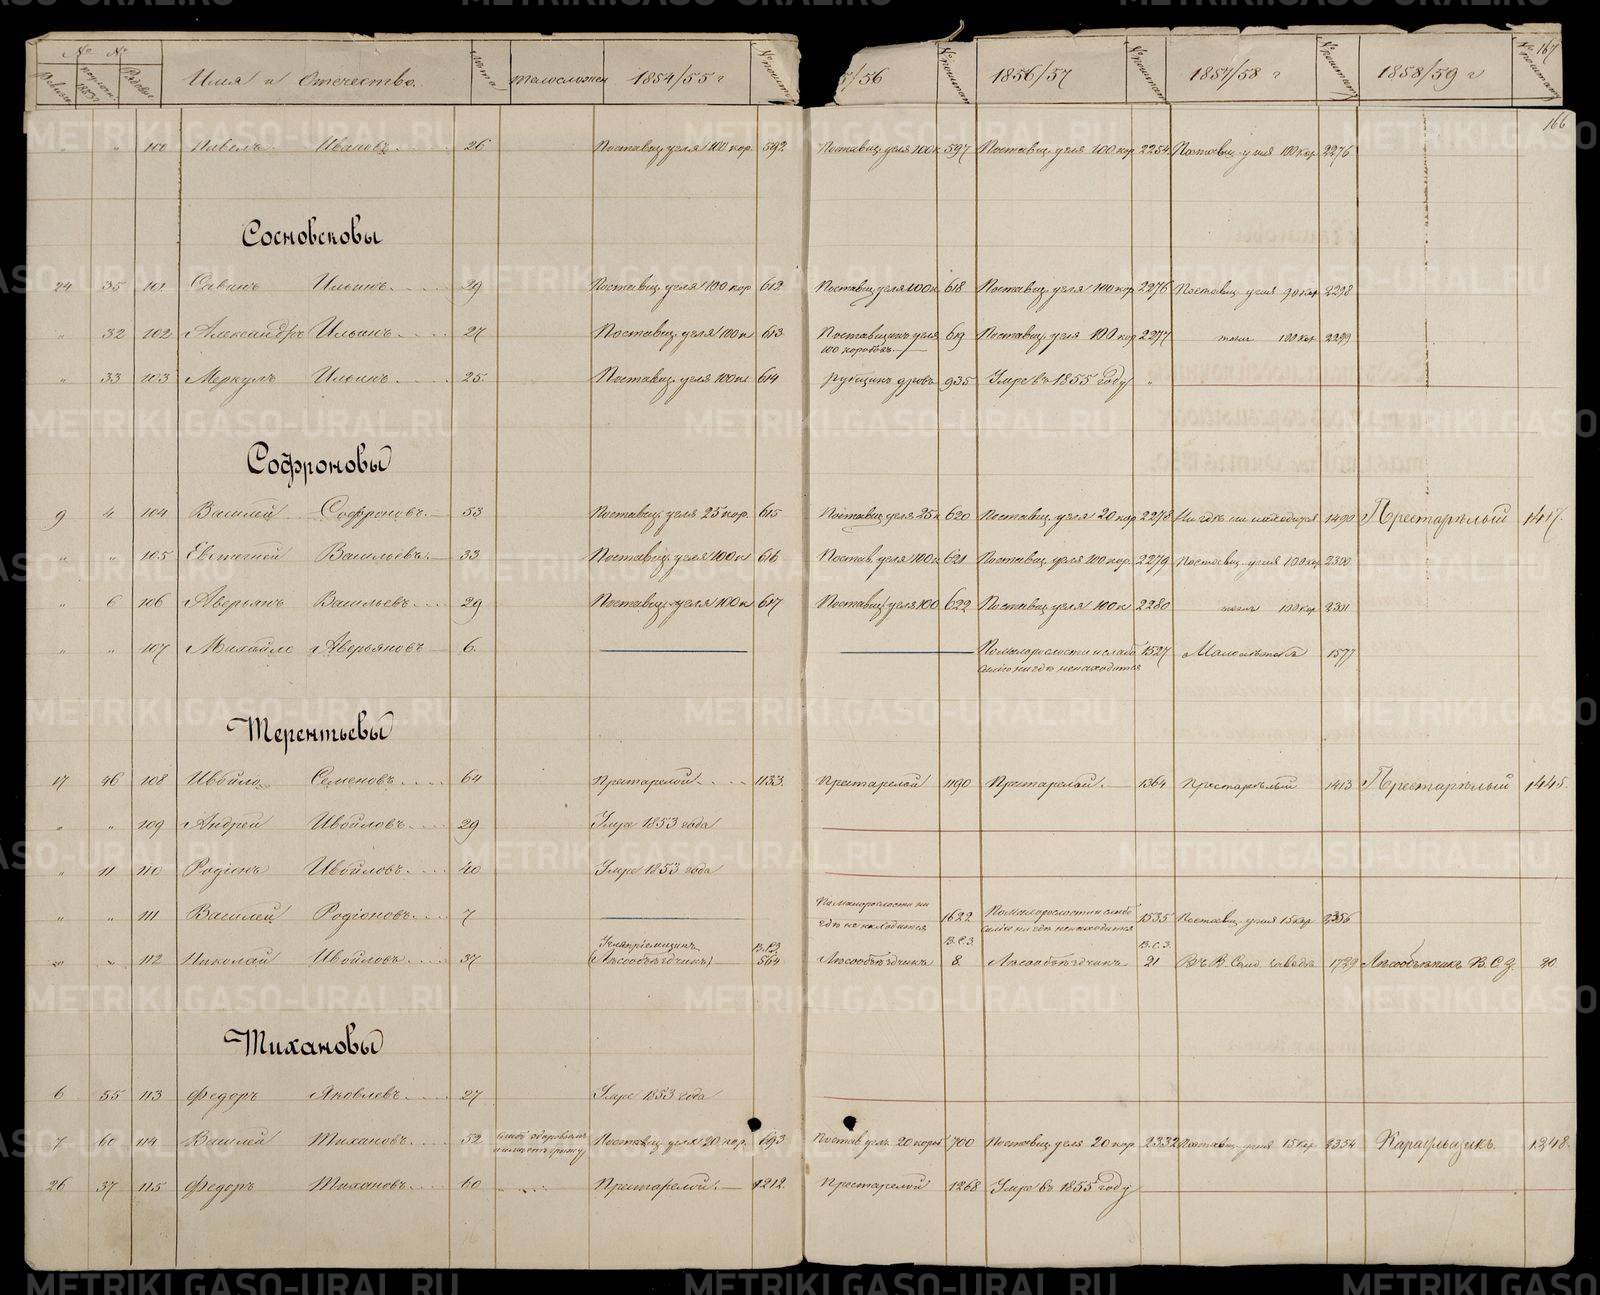 № Ревизс. № По ревиз. 1834 Рядовые Имя и Отечество. Лета Телосложен 1854/55 г № по штат 5/56 № по штат 1856/57 № по штат 1857/58 г № по штат 1858/59 г № по штат 167
166
" " 100 Павелъ Ивановъ 26 Поставщ. угля 100 кор. 592 Поставщ. угля 100 к 597 Поставщ. угля 100 кор 2254 Поставщ. угля 100 кор 2276
Сосновсковы
24 35 101 Савинъ Ильинъ 29 Поставщ. угля 100 кор 612 Поставщ. угля 100 к 618 Поставщ. угля 100 кор 2276 Поставщ. угля 90 кор 2298
" 32 102 Александръ Ильинъ 27 Поставщ. угля 100 к 613 Поставщикъ угля 100 коробовъ 619 Поставщ. угля 100 кор 2277 тоже 100 кор 2299
" 33 103 Меркулъ Ильинъ 25. Поставщ. угля 100 к 614 рубщикъ дровъ 935 Умре въ 1855 году "
Софроновы
9 4 104 Василей Софроновъ 53 Поставщ. угля 25 кор. 615 Поставщ. угля 25 к 620 Поставщ. угля 20 кор 2278 Ни гдѣ не находится 1490 Престарѣлый 1417.
" " 105 Евстегней Васильевъ 33 Поставщ. угля 100 к 616 Постав. угля 100 к 621 Поставщ. угля 100 кор. 2279 Поставщ. угля 100 кор 2300
" 6 106 Аверьянъ Васильевъ 29 Поставщ. угля 100 к 617 Поставщ угля 100 622 Поставщ. угля 100 к 2280 тоже 100 кор 2301
" " 107 Михайло Аверьяновъ 6. По малорослости и слабо силію ни гдѣ не находится 1527 Малолѣтокъ 1577
Терентьевы
17 46 108 Ивойло Семеновъ 64 Престарелой 1133. Престарелой 1190 Престарелой 1364 Престарѣлый 1413 Престарѣлый 1445.
" " 109 Андрей Ивойловъ 29 Умре 1853 года
" 11 110 Родіонъ Ивойловъ 40 Умре 1853 года
" " 111 Василей Родіоновъ 7 По малорослости ни гдѣ не находится 1622 По малорослости и слабо силію ни гдѣ не находится 1535 Поставщ. угля 15 кор 2356
" " 112 Николай Ивойловъ 37 (Лѣсообъѣздчикъ) В.С.З. 564 Лѣсообъѣздчикъ В.С.З. 8. Лѣсообъѣздчикъ В.С.З. 21 Въ В. Сало. заводъ 1729 Лѣсообъѣзникъ В.С.З. 30.
Тихановы
6 55 113 Федоръ Яковлевъ 27 Умре 1853 года
7 60 114 Василей Тихановъ 52 слабъ здоровьемъ и имѣетъ грыжу Поставщ. угля 20 кор. 693 Постав. угль 20 короб 700 Поставщ. угля 20 кор. 2332 Поставщ. угля 15 кор 2354 Караульщикъ. 1348.
26 37 115 Федоръ Тихановъ 60 Престарелой. 1212. Престарелой 1268 Умре въ 1855 году
METRIKI.GASO-URAL.RU